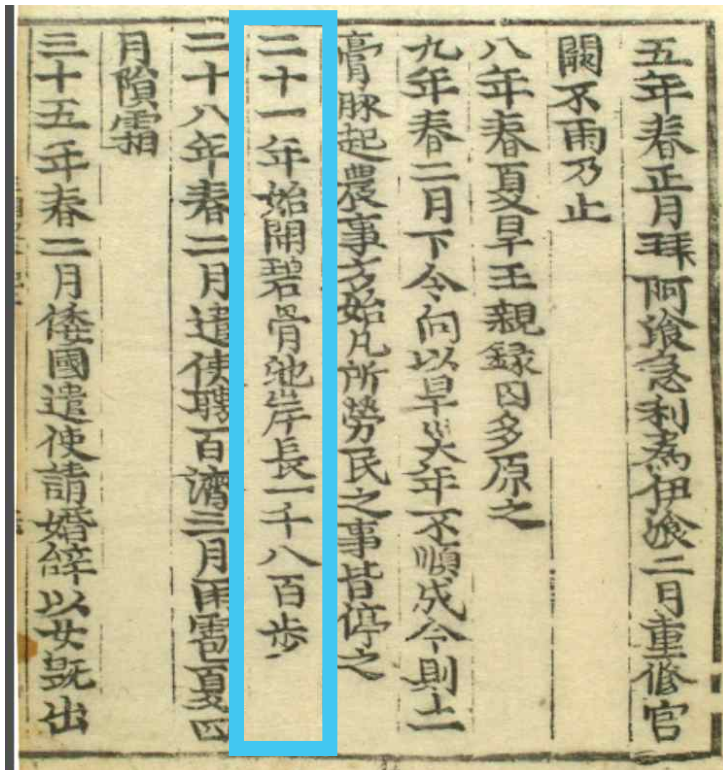 五年春正月拜阿飡急利爲伊飡二月重修宫
闕不雨乃止
八年春夏旱王親録囚多原之
九年春二月下令向以旱災年不順成今則土
膏脉起農事方始凡所勞民之事皆停之
二十一年始開碧骨池岸長一千八百步
二十八年春二月遣使聘百濟三月雨雹夏四
月隕霜
三十五年春二月倭國遣使請婚辭以女旣出